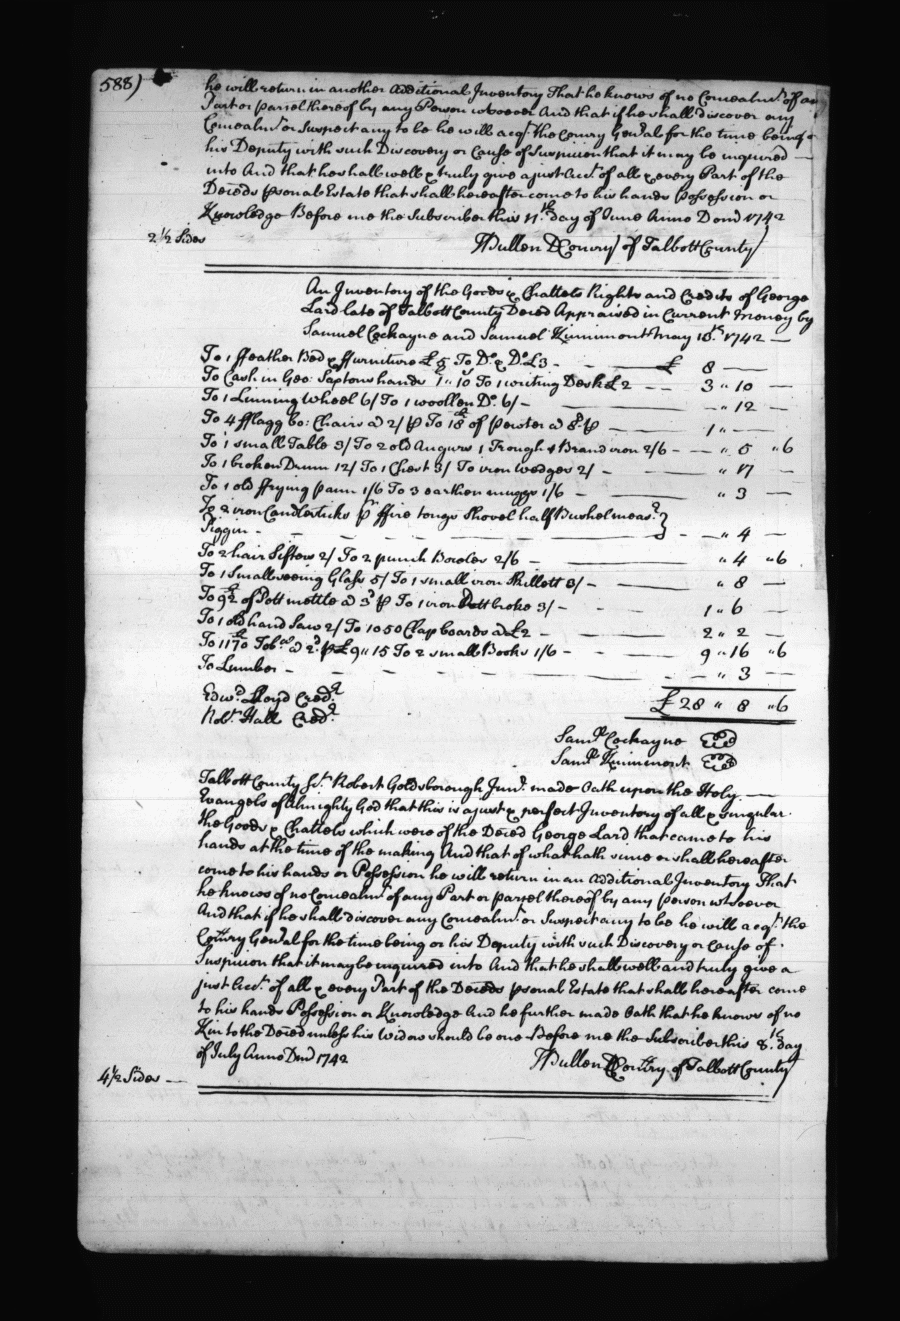 588)
he will return in another additional Inventory That he knows of no Concealmt. of any
Part or parrel thereof by any Person whoever And that if he shall discover any
Concealmt. or Suspect any to be he will acqt. the Comry Genral for the time being or
his Deputy with such Discovery or Cause of Suspicion that it may be inquired
into And that he shall well & truly give a just Acct. of all & every Part of the
Deceds psonal Estate that shall hereafter come to his hands Possession or
Knowledge Before me the Subscriber this 11th. day of June Anno Domi 1742
2 1/2 Sides
TBullen DComry of Talbott County
An Inventory of the Goods & Chattels Rights and Credits of George
Lard late of Talbott County Deced Appraised in Current Money by
Samuel Cockayne and Samuel Kinimont May 18th 1742 —
To 1 ffeather Bed & ffurniture £5 To Do. & Do. £3 - £ 8 —
To Cash in Geo: Saptons hands 1 " 10 To 1 writing Desk £2 - - 3 " 10 —
To 1 Linning Wheel 6/ To 1 woollen Do. 6/ - " 12 —
To 4 fflagg bo: Chairs @ 2/ p To 18 lb of pewter @ 8d p — 1 " —
To 1 small Table 3/ To 2 old Augurs 1 Trough & Brand iron 2/6 - — " 5 " 6
To 1 broken Drum 12/ To 1 Chest 3/ To iron Wedges 2/ - " 17 —
To 1 old ffrying pann 1/6 To 3 earthen muggs 1/6 - " 3 —
To 2 iron Candlesticks pr ffire tongs Shovel half Bushel meas.r }
Piggin - - - - " 4 —
To 2 hair Sifters 2/ To 2 punch Bowles 2/6 - " 4 " 6
To 1 Small seeing Glass 5/ To 1 small iron Skillett 3/ - " 8 —
To 92 lb of Pott mettle @ 3d p To 1 iron Pott broke 3/ - 1 " 6 —
To 1 old hand Saw 2/ To 1050 Clapboards @ £2 - 2 " 2 —
To 1170 lb Tobco @ 2d. p £9 " 15 To 2 small Books 1/6 - 9 " 16 " 6
To Lumber - - - - " 3 —
Edwd. Lloyd Credr
Robt. Hall Credr.
£ 28 " 8 " 6
Saml Cockayne
Saml Kinimont
Talbott County Sct. Robert Goldsborough Junr. made Oath upon the Holy
Evangels of Almighty God that this is a just & perfect Inventory of all & singular
the Goods & Chattels which were of the Deced George Lard that came to his
hands at the time of the making And that of what hath since or shall hereafter
come to his hands or Possession he will return in an additional Inventory That
he knows of no Concealmt. of any Part or parrel thereof by any person whsoever
And that if he shall discover any Concealmt. or Suspect any to be he will acqt. the
Comry Genral for the time being or his Deputy with such Discovery or Cause of
Suspicion that it may be inquired into And that he shall well and truly give a
just Acct. of all & every Part of the Deceds psonal Estate that shall hereafter come
to his hands Possession or Knowledge And he further made Oath that he knows of no
Kin to the Deced unless his Widow should be one Before me the Subscriber this 8th. day
of July Anno Dmi 1742
TBullen DComry. of Talbott County
4 1/2 Sides —